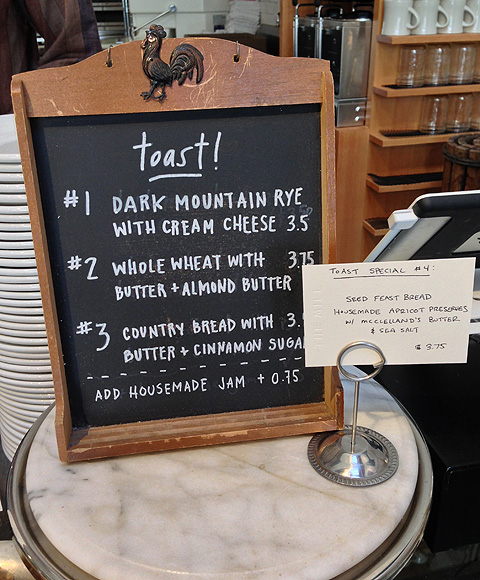 toast!
#1 DARK MOUNTAIN RYE
WITH CREAM CHEESE 3.5
#2 WHOLE WHEAT WITH 3.75
BUTTER + ALMOND BUTTER
#3 COUNTRY BREAD WITH 3.
BUTTER + CINNAMON SUGA
ADD HOUSEMADE JAM + 0.75
TOAST SPECIAL #4:
SEED FEAST BREAD
HOUSEMADE APRICOT PRESERVES
W/ MCCLELLAND'S BUTTER
& SEA SALT
$ 3.75